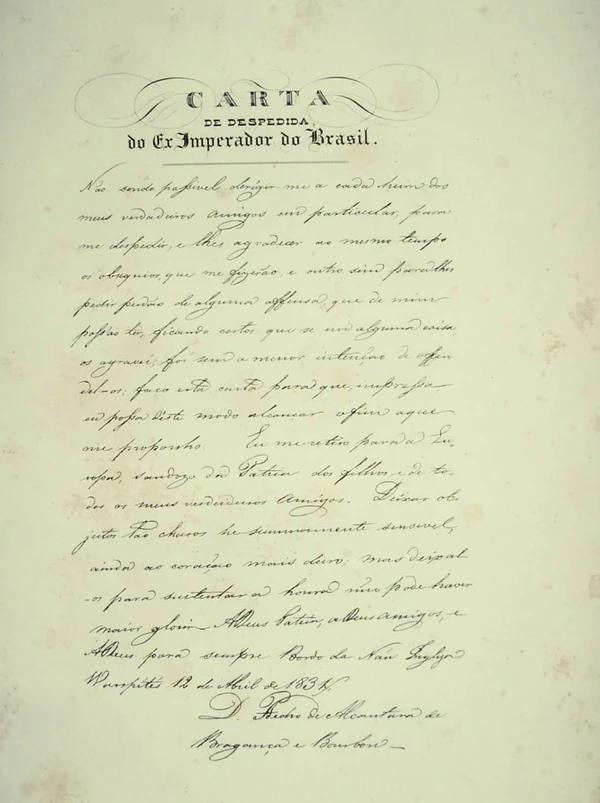 CARTA
DE DESPEDIDA,
do Ex Imperador do Brasil.
Não sendo possivel dirigir-me a cada hum dos
meus verdadeiros amigos em particular, para
me despedir, e lhes agradecer ao mesmo tempo
os obsequios, que me fizerão, e outro sim para lhes
pedir perdão de alguma offensa, que de mim
possão ter, ficando certos que se em alguma coisa
os agravei, foi sem a menor intenção de offen
del-os; faço esta carta para que, impressa
eu possa d'este modo alcançar o fim a que
me proponho. Eu me retiro para a Eu-
ropa, saudozo da Patria dos filhos, e de to-
dos os meus verdadeiros Amigos. Deixar ob-
jectos tão charos he summamente sensivel,
ainda ao coração mais duro; mas deixal-
-os para sustentar a honra não pode haver
maior gloria. ADeus Patria, aDeus amigos, e
ADeus para sempre Bordo da Náu Ingleza
Warspite 12 de Abril de 1831.
D. Pedro de Alcantara de
Bragança e Bourbon